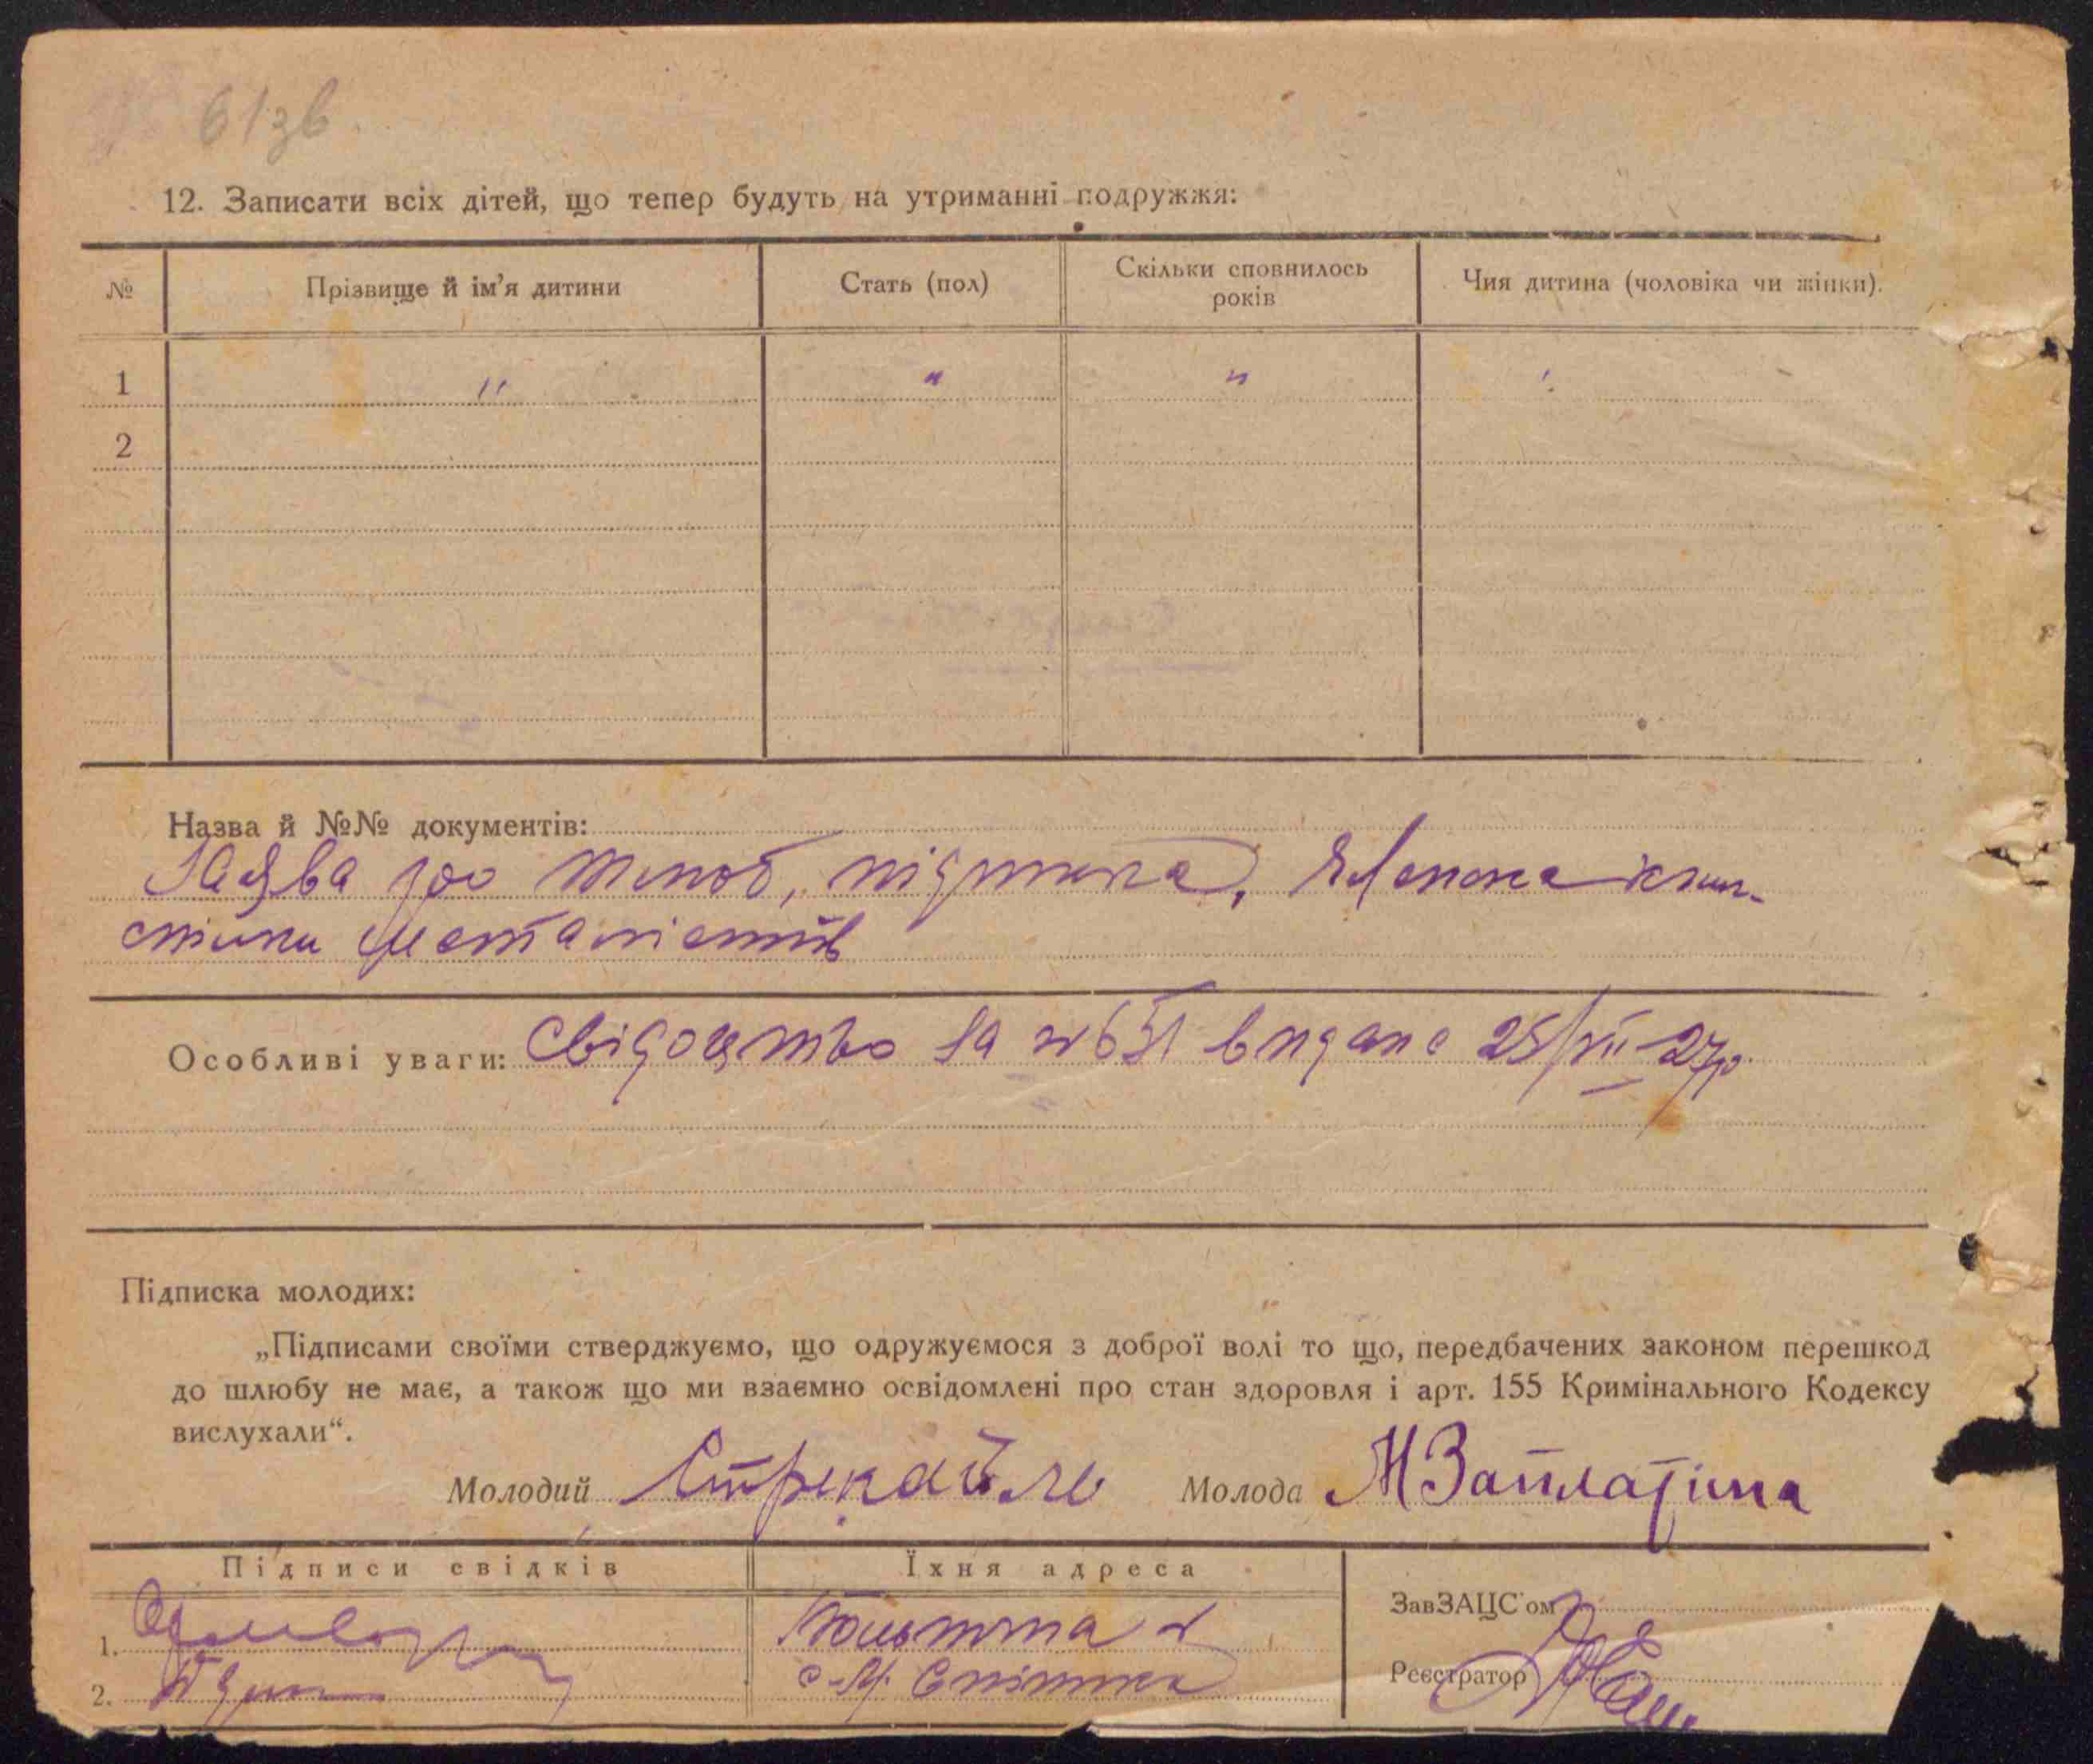 61зв
12. Записати всіх дітей, що тепер будуть на утриманні подружжя:
№ Прізвище й ім'я дитини Стать (пол) Скільки сповнилось років Чия дитина (чоловіка чи жінки).
1 " " " "
2
Назва й №№ документів:
Заява про шлюб, підписка, членська книж-
спілки металістів
Особливі уваги: Свідоцтво за № 651 видане 25/XII-27р.
Підписка молодих:
„Підписами своїми стверджуємо, що одружуємося з доброї волі то що, передбачених законом перешкод
до шлюбу не має, а також що ми взаємно освідомлені про стан здоровля і арт. 155 Кримінального Кодексу
вислухали“.
Молодий Молода МЗаплатіна
Підписи свідків Їхня адреса
ЗавЗАЦС'ом
1.
Реєстратор
2.